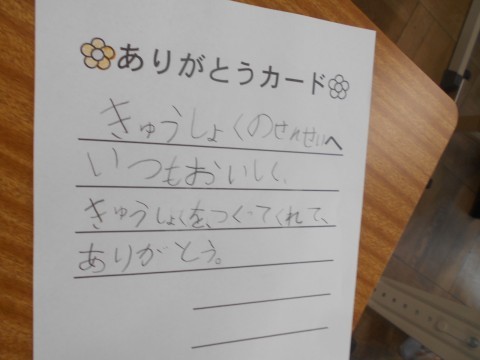 ありがとうカード
きゅうしょくのせんせいへ
いつもおいしく、
きゅうしょくを、つくってくれて、
ありがとう。